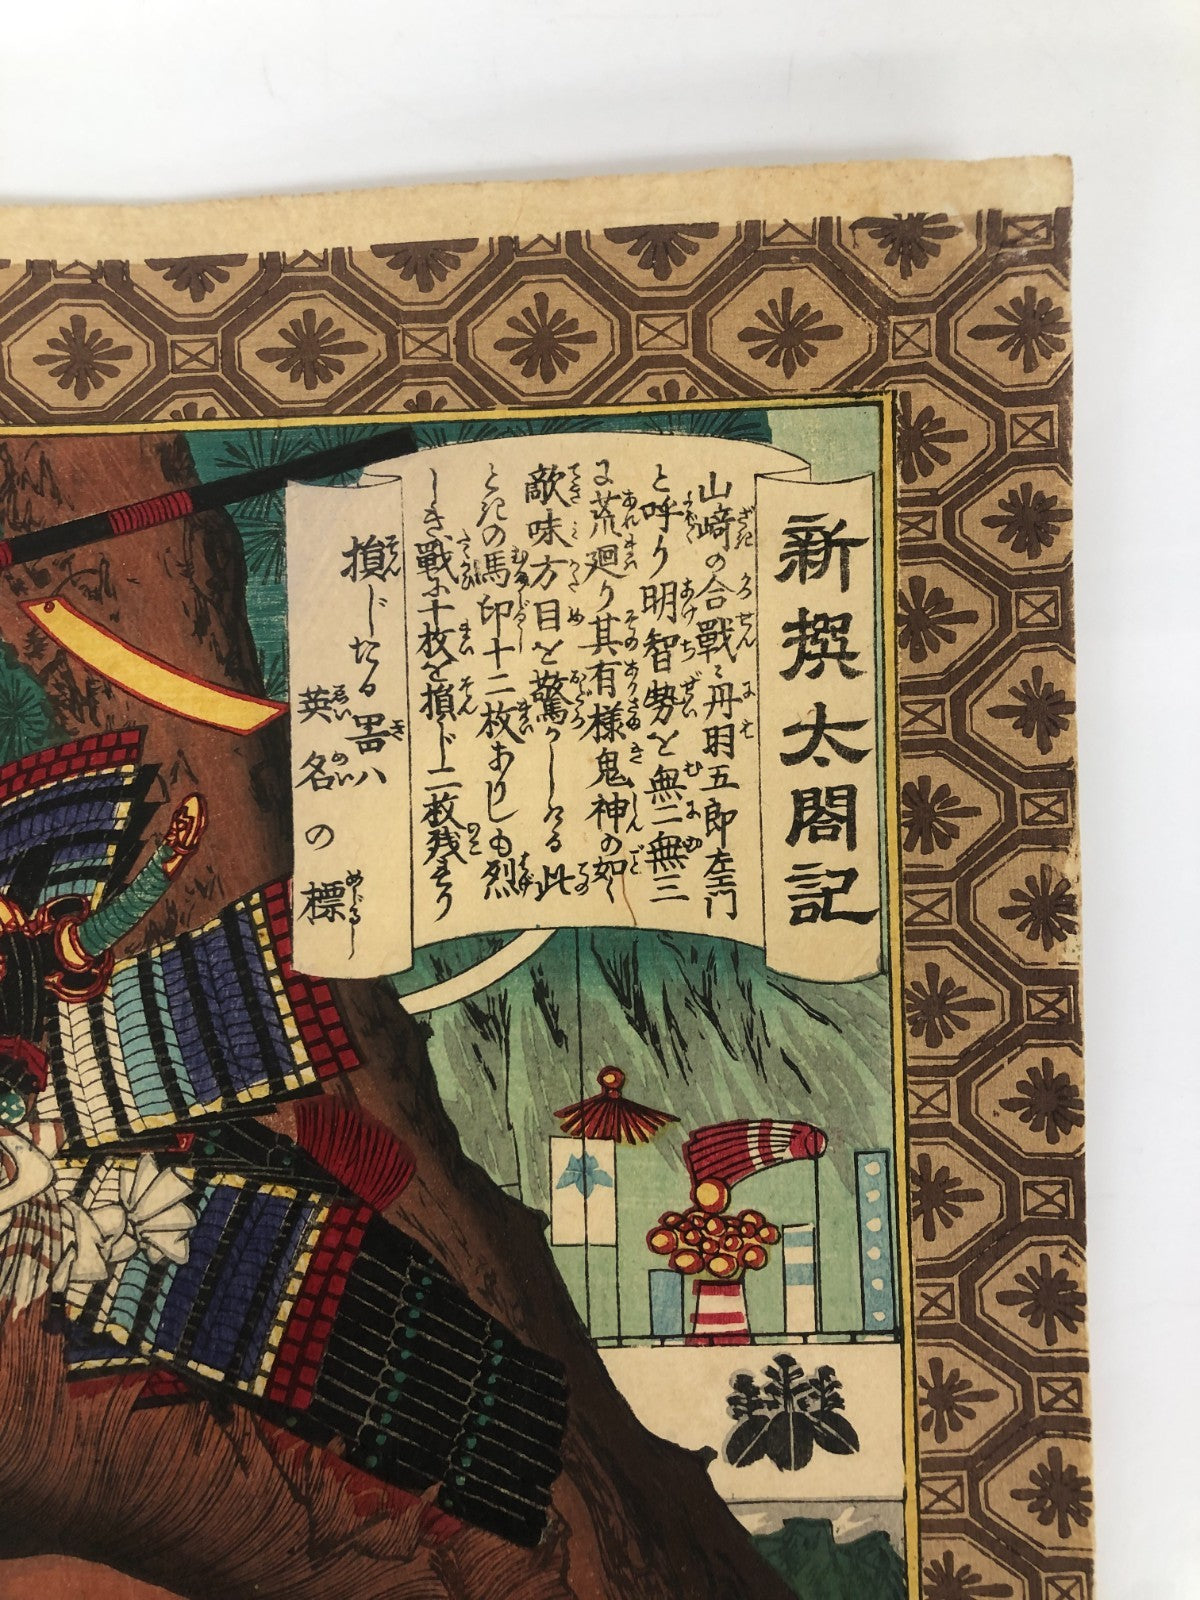 新撰太閤記
山﨑の合戰に丹羽五郎左エ門
と呼り明智勢を無二無三
に荒廻り其有様鬼神の如く
敵味方目を驚かしたる此
ときの馬印十二枚ありしも烈
しき戰に十枚を損じ二枚残りり
損じたる噐ハ
英名の標